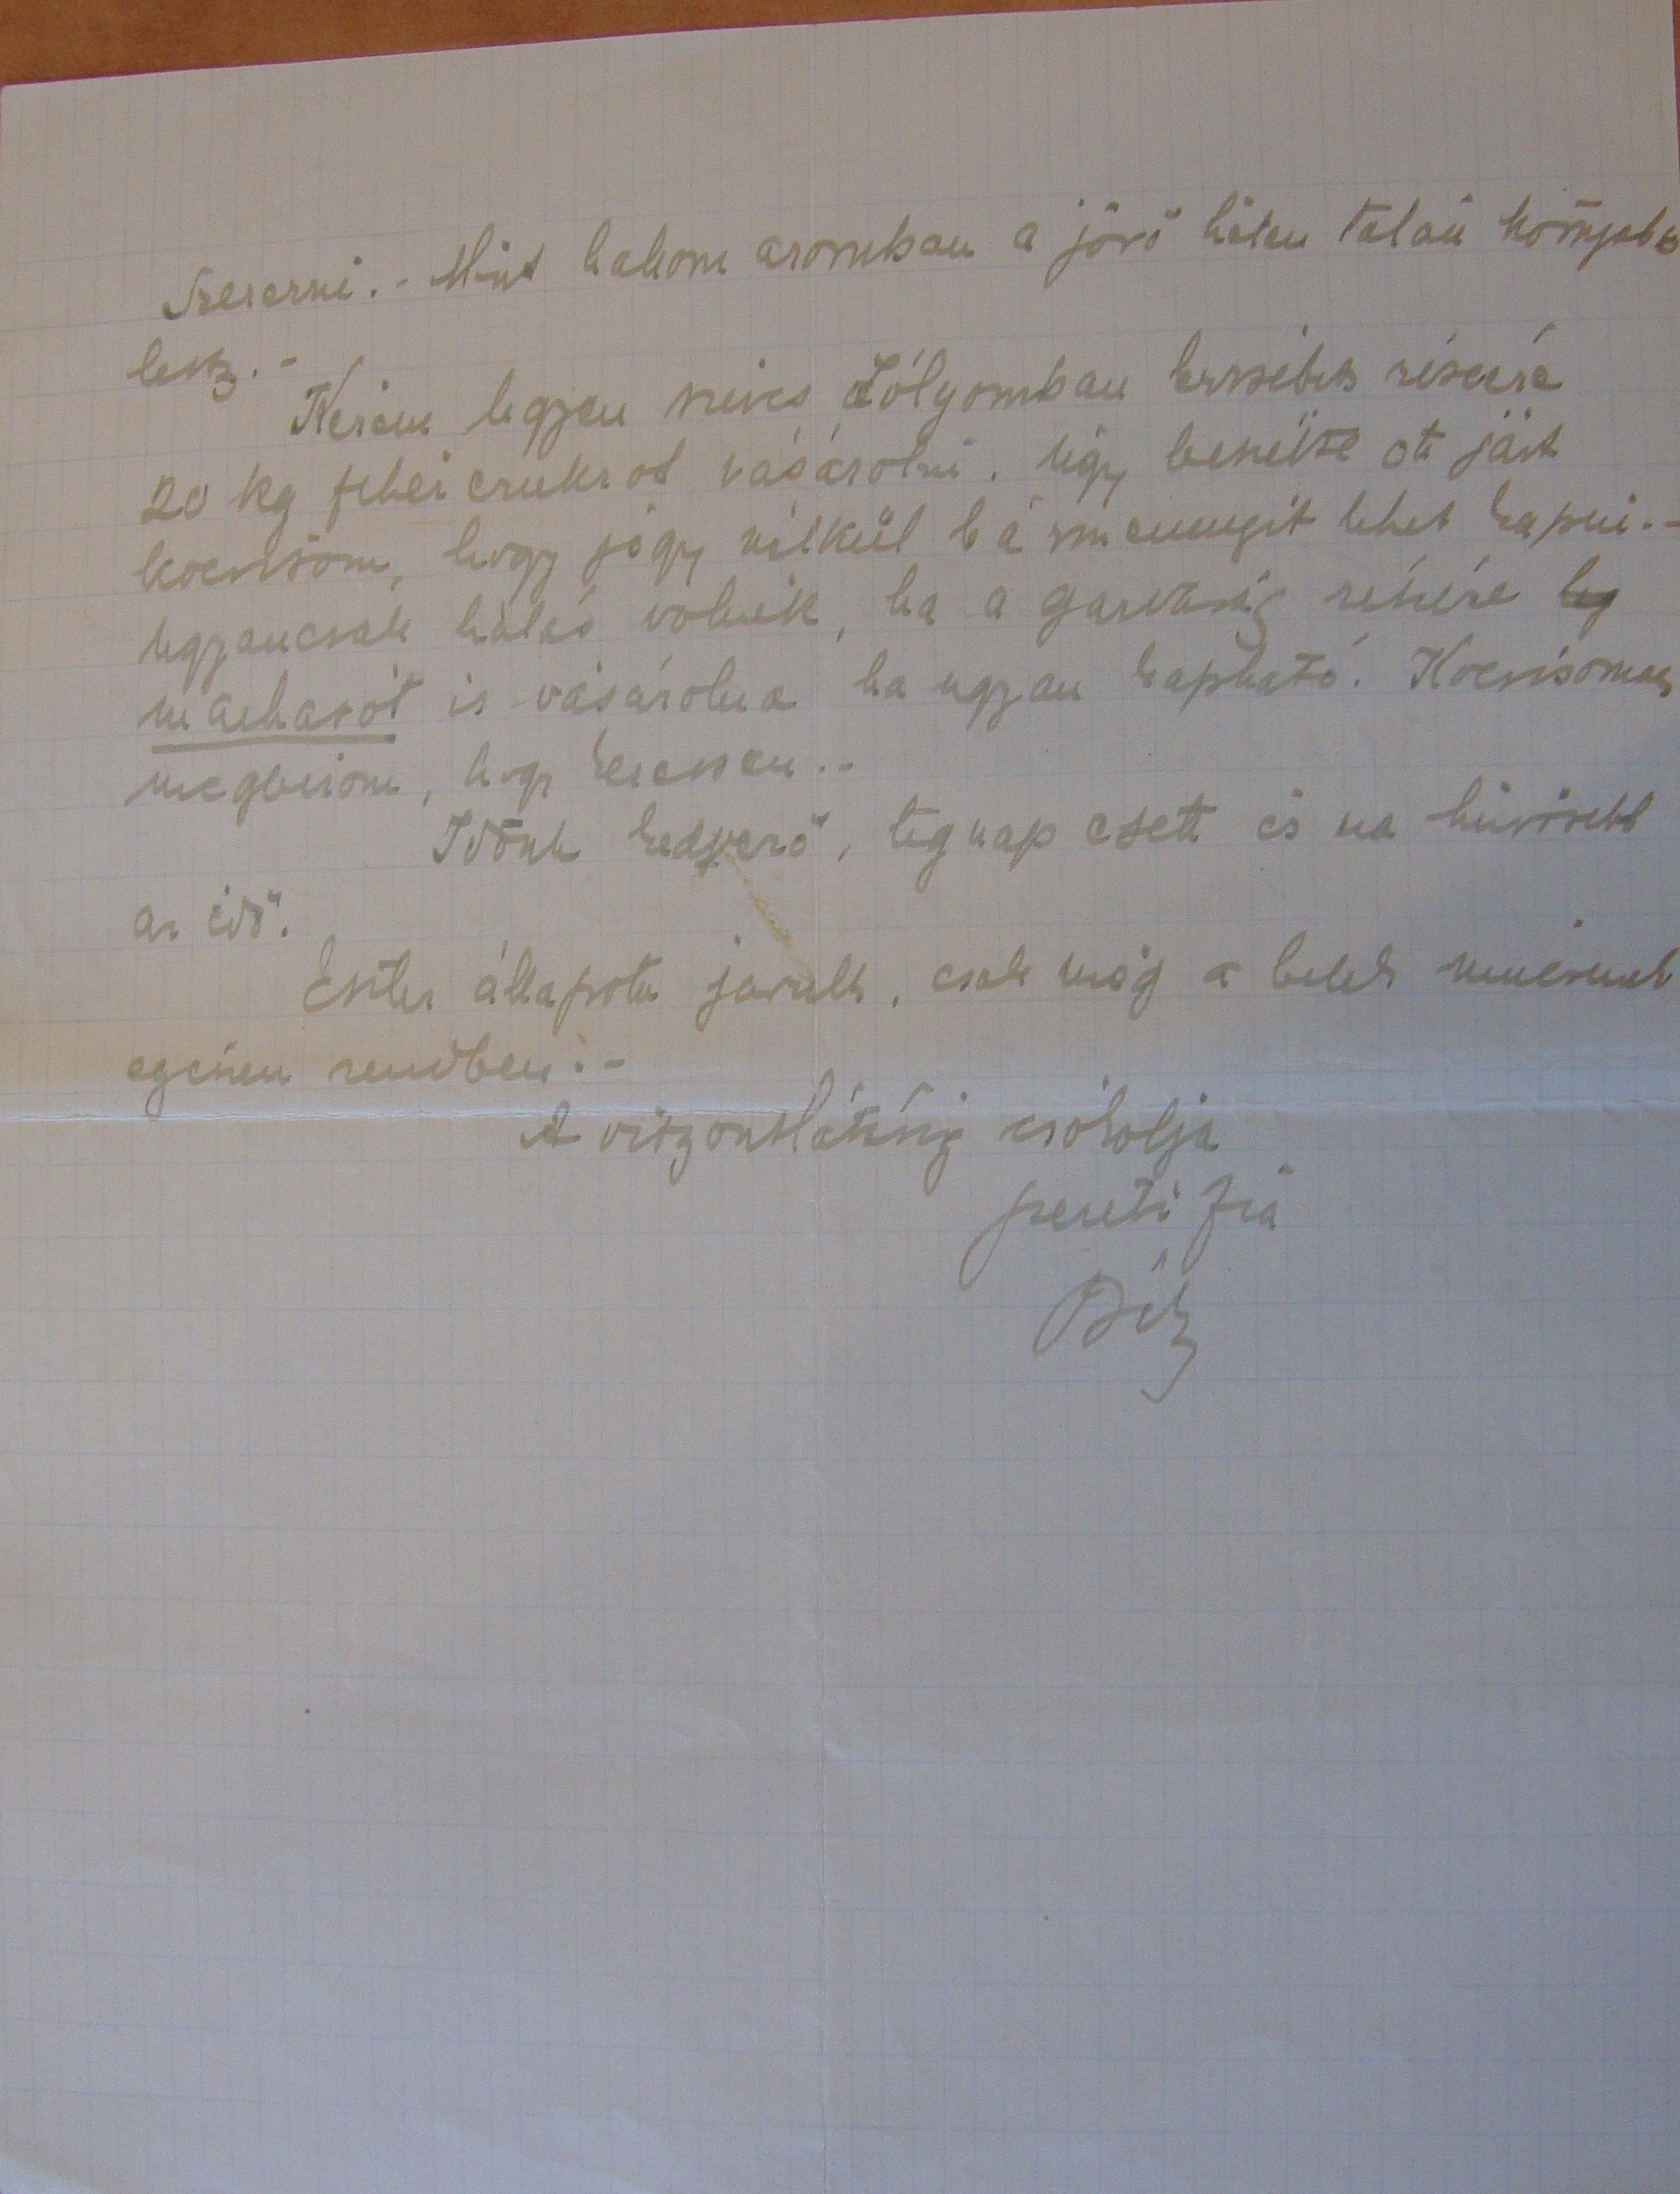 szerezni.- Mint hallom azonban a jövő héten talán könnyebb
lesz.-
Kérem legyen szives Zólyomban Erzsébet részére
20 kg fehér czukrot vásárolni, úgy beszélte ott járt
kocsisom, hogy jegy nélkül bármennyit lehet kapni.-
Ugyancsak hálás volnék, ha a gazdaság részére
is vásárolna ha ugyan kapható. Kocsisomat
megbizom, hogy keressen.-
Időnk kedvező, tegnap esett és ma hűvösebb
az idő.
Eszter állapota javult, csak még a belek nincsenek
egészen rendben.-
A viszontlátásig csókolja
szerető fia
Béla